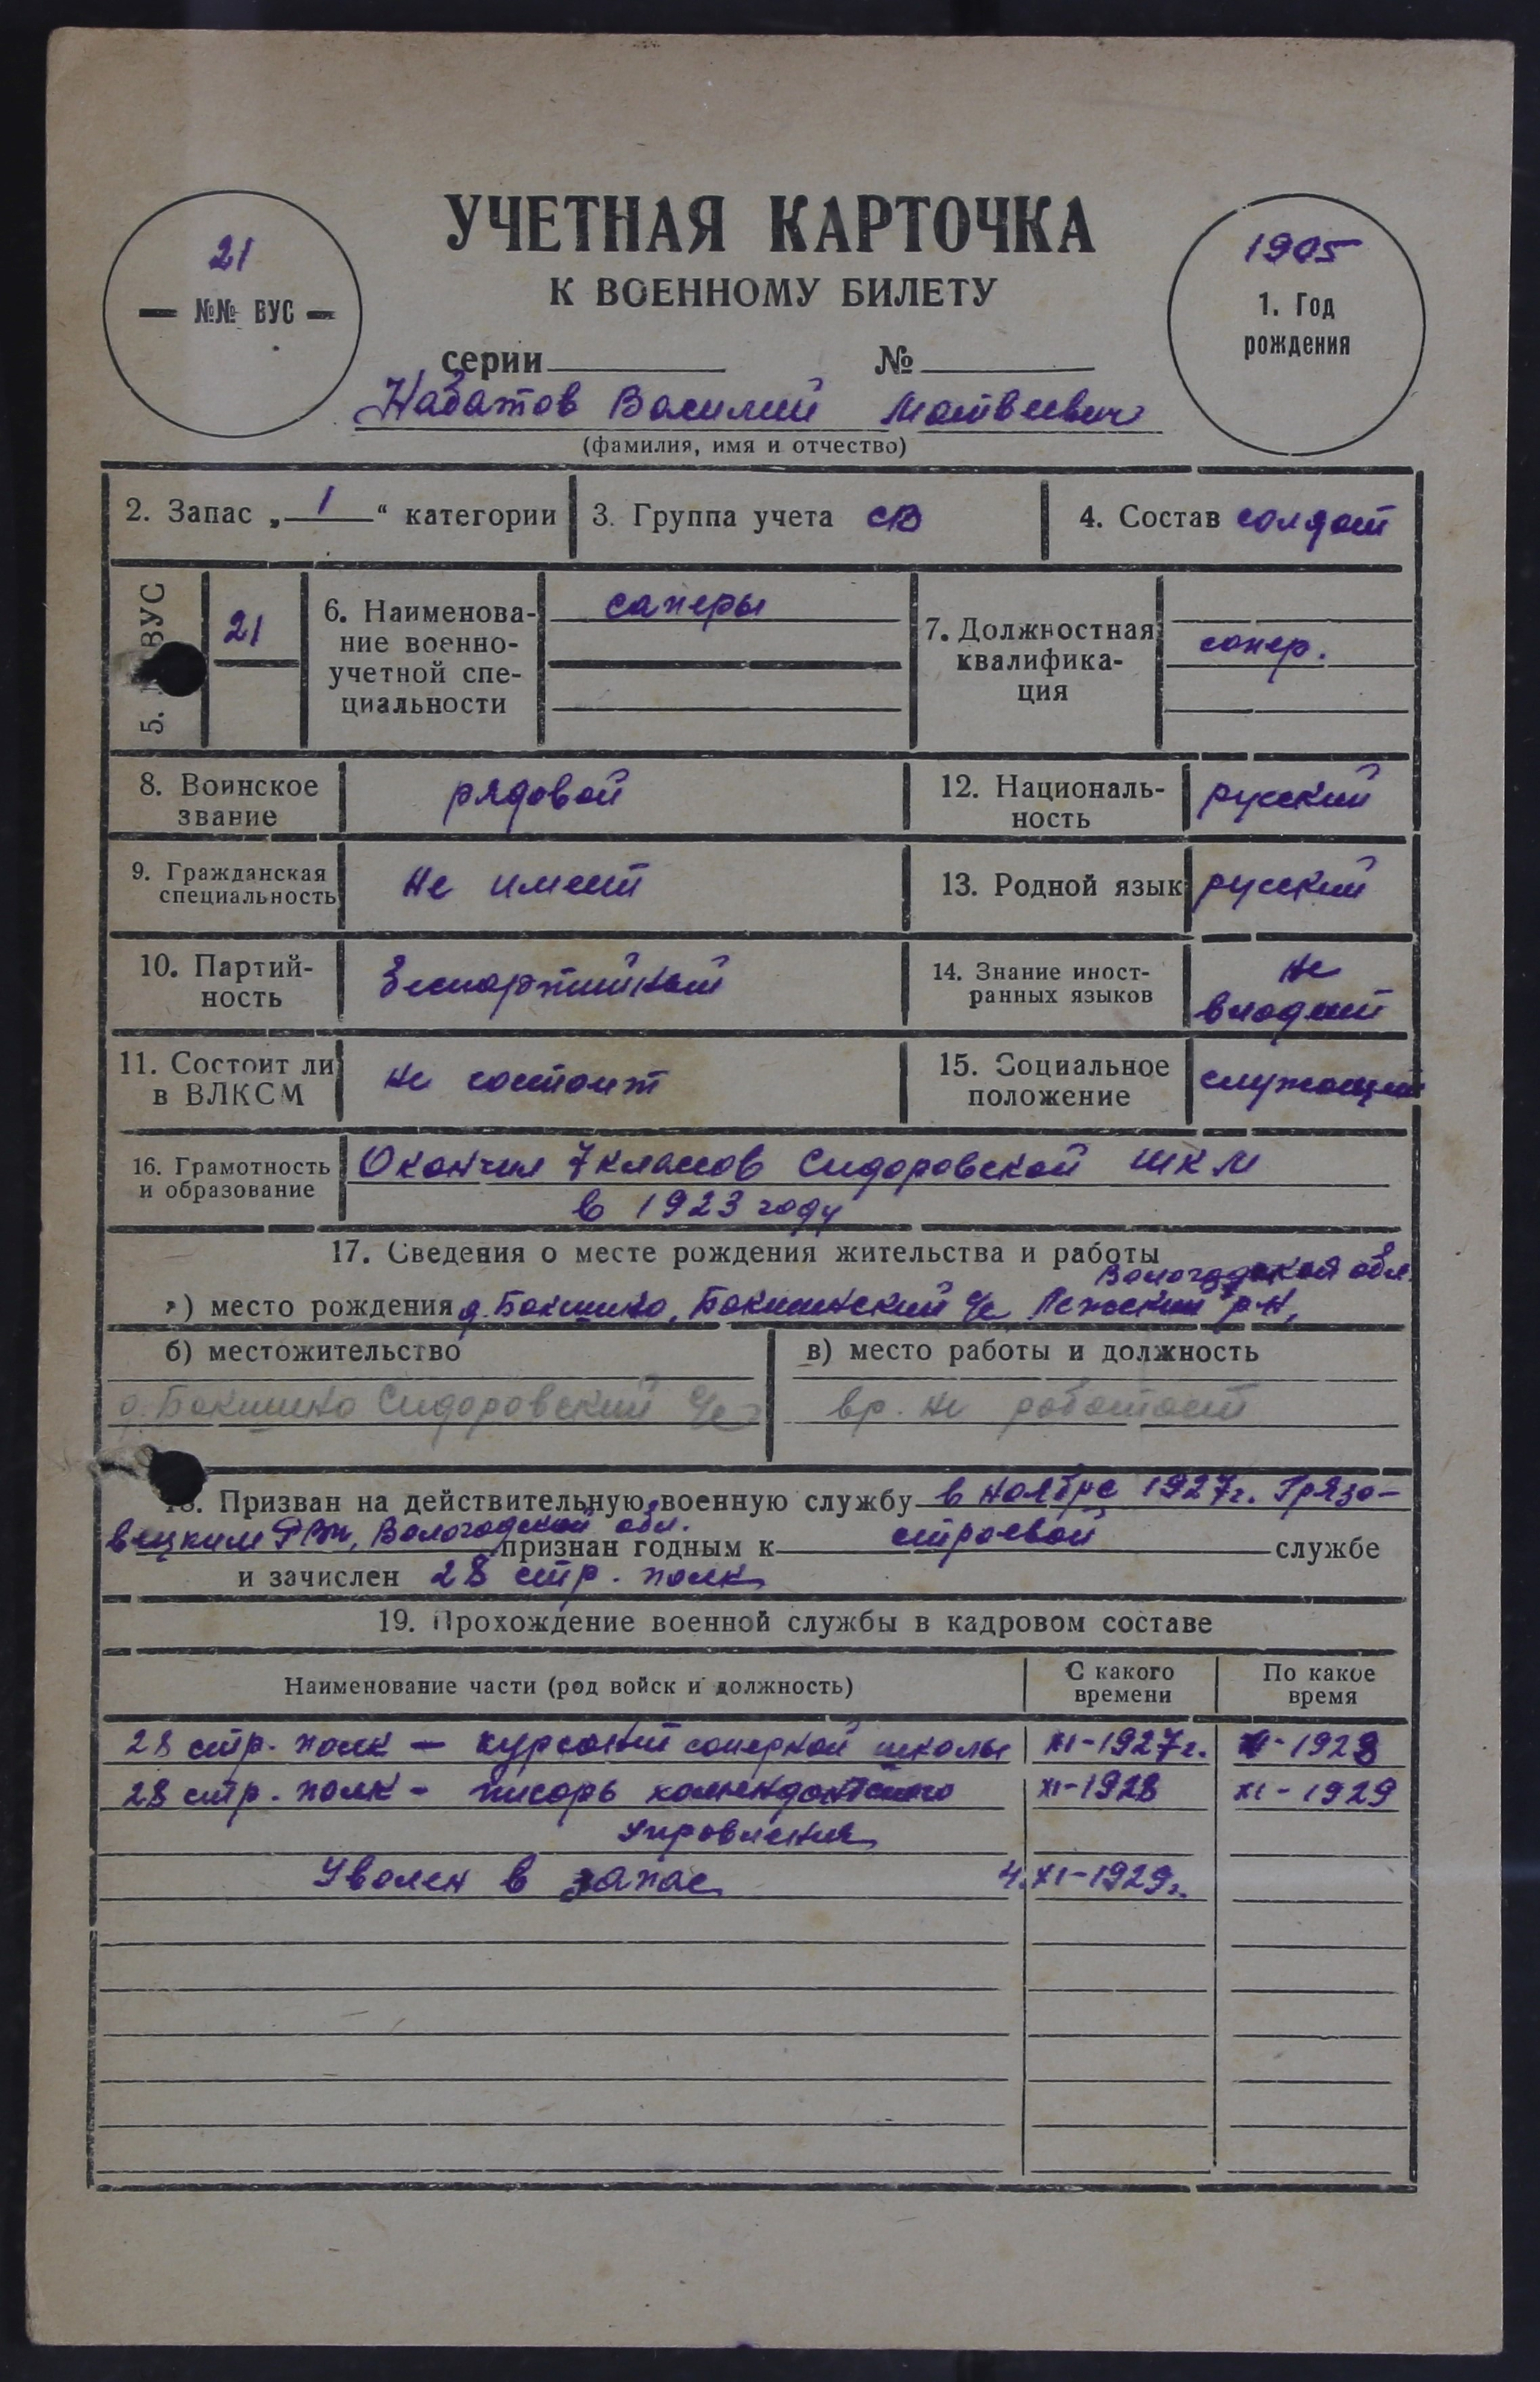 УЧЕТНАЯ КАРТОЧКА
К ВОЕННОМУ БИЛЕТУ
21
— №№ ВУС —
1905
1. Год
рождения
серии № 
Набатов Василий Матвеевич
(фамилия, имя и отчество)
2. Запас „ 1 “ категории
3. Группа учета СВ
4. Состав солдат
5. ВУС
21
6. Наименова-
ние военно-
учетной спе-
циальности
саперы
7. Должностная
квалифика-
ция
сапер.
8. Воинское
звание
рядовой
12. Националь-
ность
русский
9. Гражданская
специальность
не имеет
13. Родной язык
русский
10. Партий-
ность
беспартийный
14. Знание иност-
ранных языков
не
владеет
11. Состоит ли
в ВЛКСМ
не состоит
15. Социальное
положение
служащий
16. Грамотность
и образование
Окончил 7 классов Сидоровской ШКМ
в 1923 году
17. Сведения о месте рождения жительства и работы
Вологодской обл.
а) место рождения д. Бакшино, Бакшинский с/с Лежский р-н,
б) местожительство
д. Бакшино Сидоровский с/с
в) место работы и должность
вр. не работает
18. Призван на действительную военную службу в ноябре 1927г. Грязо-
вецким РВК, Вологодской обл. признан годным к строевой службе
и зачислен 28 стр. полк
19. Прохождение военной службы в кадровом составе
Наименование части (род войск и должность)
С какого
времени
По какое
время
28 стр. полк — курсант саперной школы XI-1927г. XI-1928
28 стр. полк - писарь комендантского XI-1928 XI-1929
управления
Уволен в запас 4.XI-1929г.